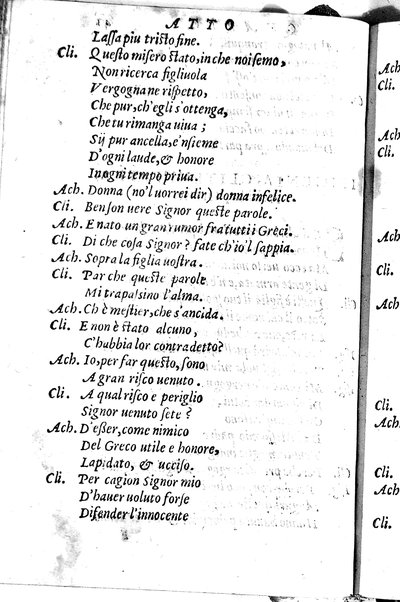 ATTO
Lassa piu tristo fine.
Cli. Questo misero stato, in che noi semo,
Non ricerca figliuola
Vergogna ne rispetto,
Che pur, ch'egli s'ottenga,
Che tu rimanga uiua ;
Sij pur ancella, e'nsieme
D'ogni laude, & honore
In ogni tempo priua.
Ach. Donna (no'l uorrei dir) donna infelice.
Cli. Ben son uere Signor queste parole.
Ach. E nato un gran rumor fra tutti i Greci.
Cli. Di che cosa Signor? fate ch'io'l sappia.
Ach. Sopra la figlia uostra.
Cli. Par che queste parole
Mi trapassino l'alma.
Ach. Ch è mestier, che s'ancida.
Cli. E non è stato alcuno,
C'habbia lor contradetto?
Ach. Io, per far questo, sono
A gran risco uenuto.
Cli. A qual risco e periglio
Signor uenuto sete ?
Ach. D'esser, come nimico
Del Greco utile e honore,
Lapidato, & ucciso.
Cli. Per cagion Signor mio
D'hauer uoluto forse
Difender l'innocente
Ach
Cli.
Ach
Cli.
Ach
Cli.
Cli.
Ach.
Cli.
Ach
Cli.